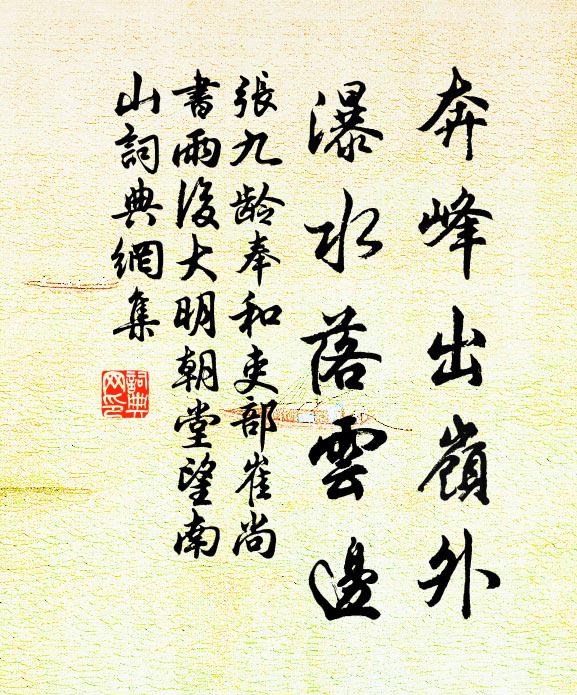 奔峰出嶺外
瀑水落雲邊
張九齡奉和吏部崔尚
書雨後大明朝堂望南
山詞典網集
詞典網印